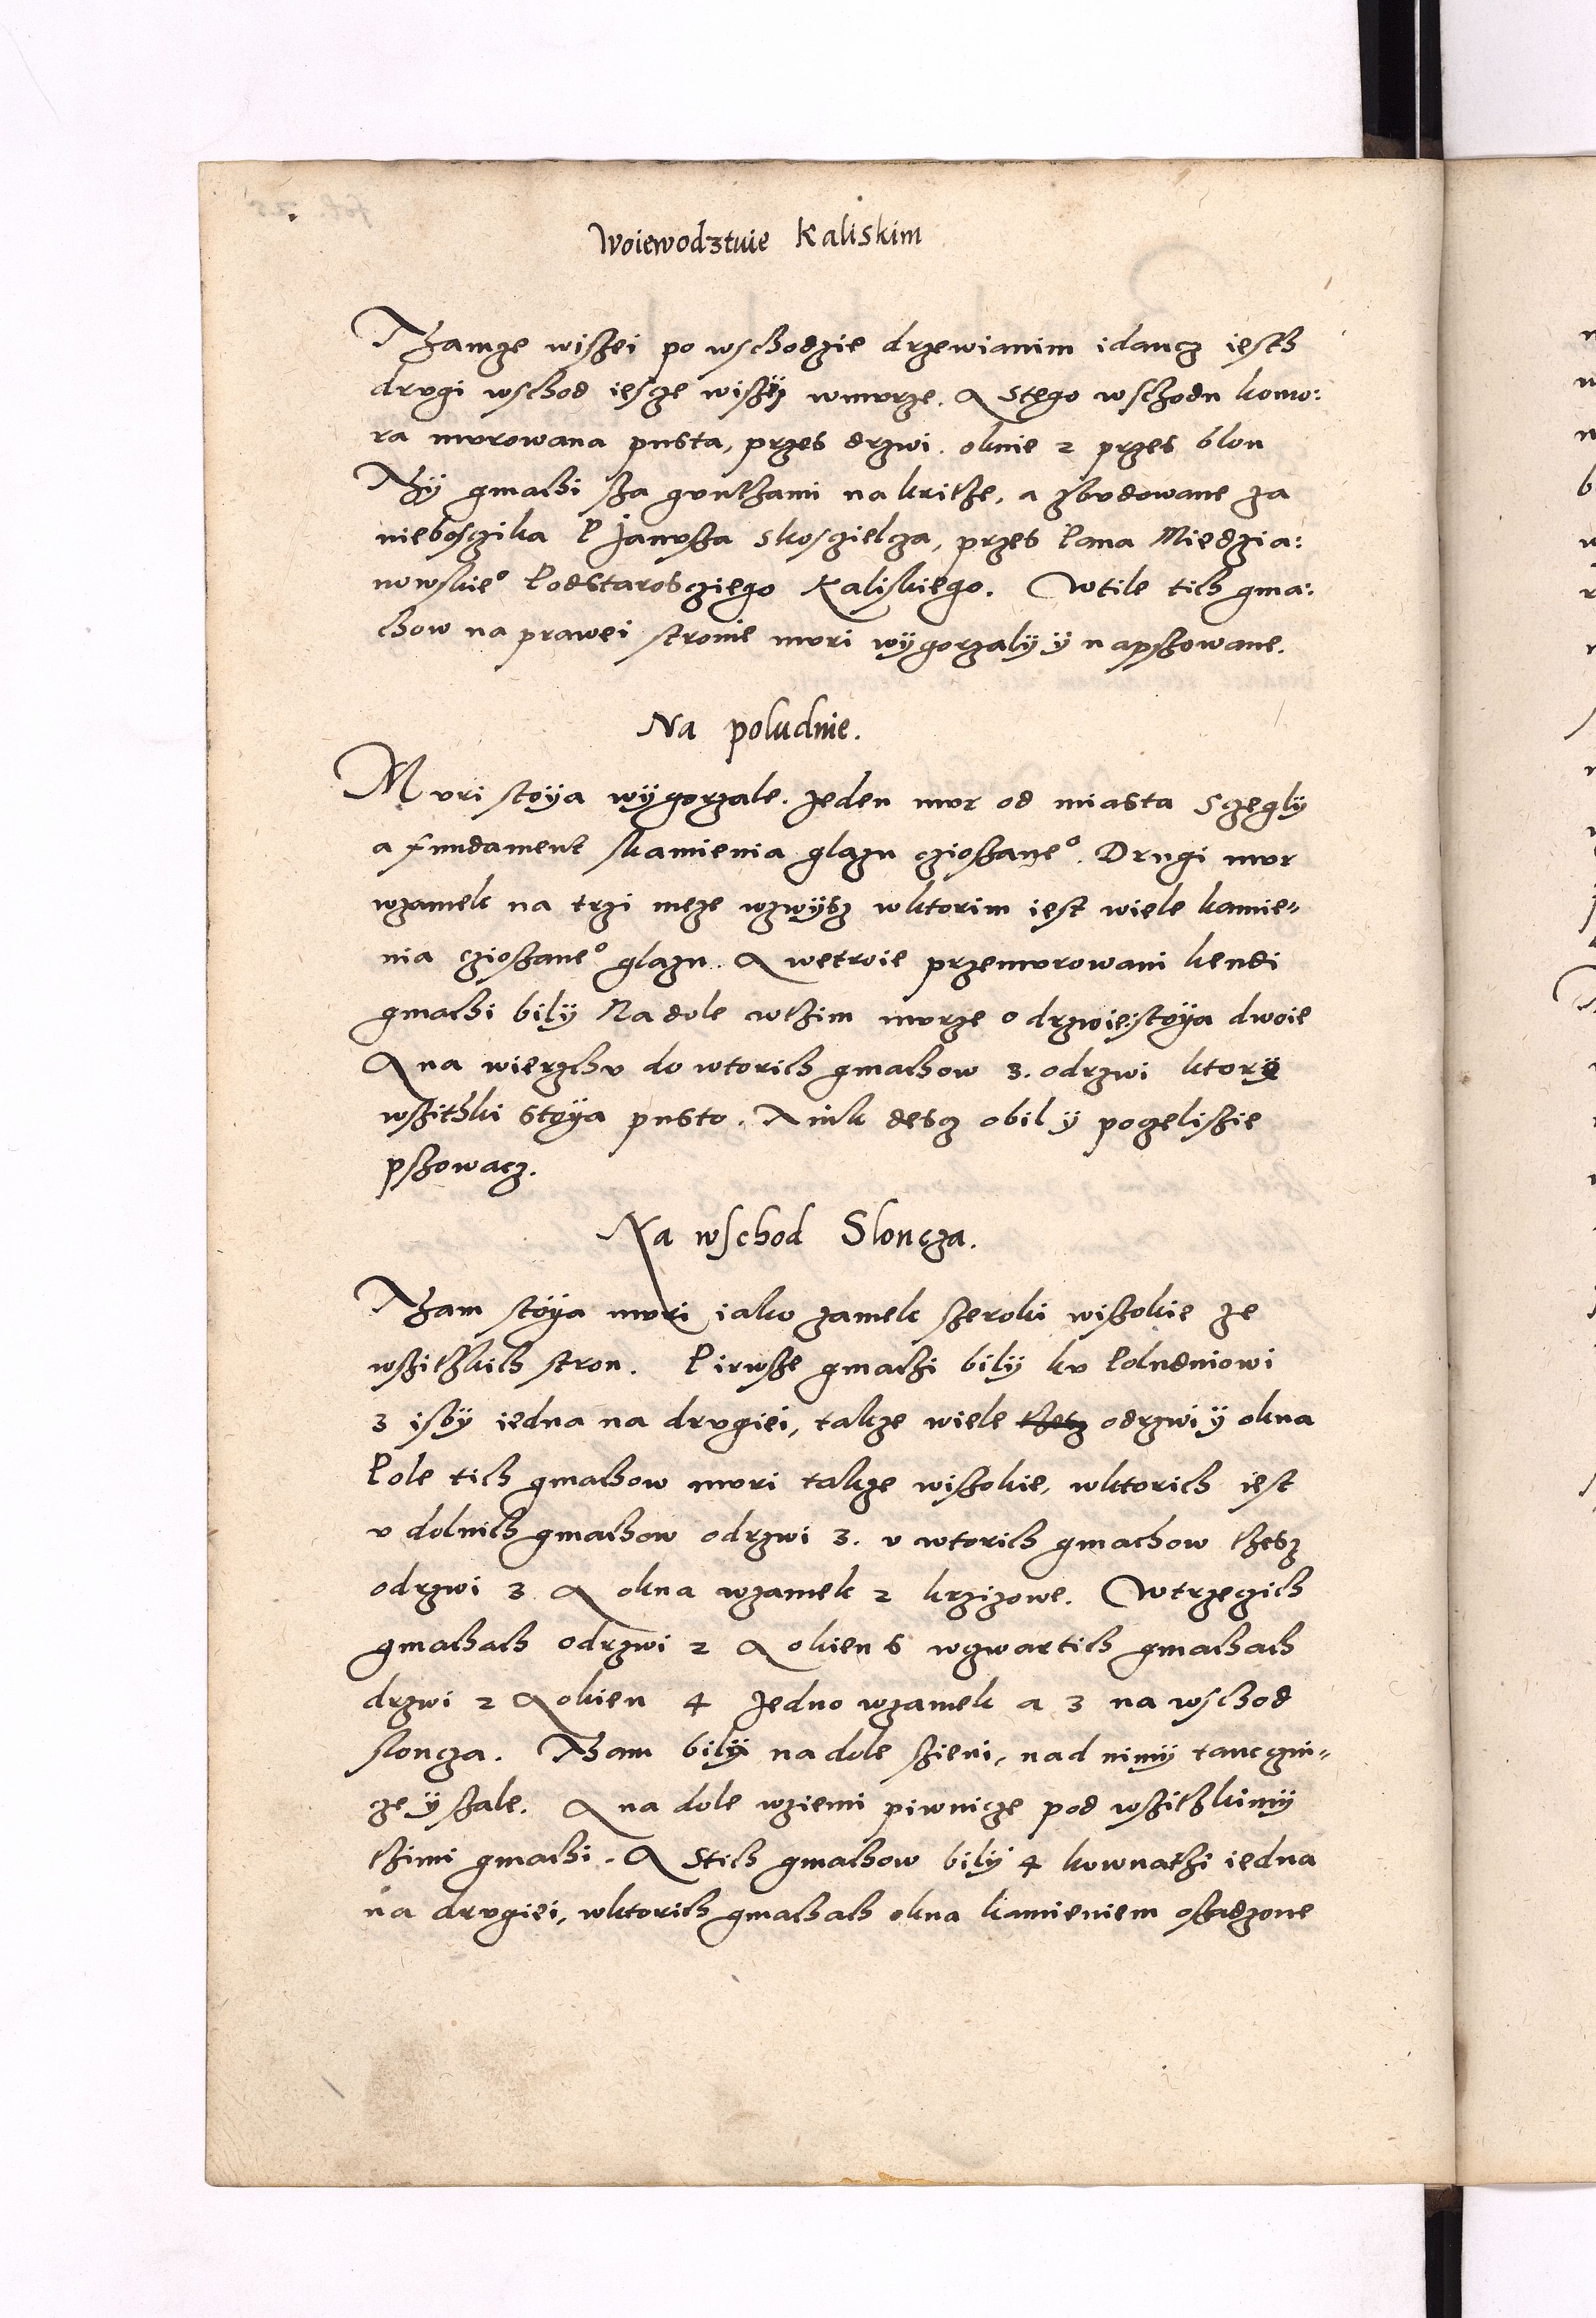 Woiewodztwie Kaliskim
Thamze wiszei po wschodzie drzewianim idancz iesth
drvgi wschod iescze wiszey wmvrze. A stego wschodu komo:
ra mvrowana pusta, przes drzwi. oknie 2 przes blon
Thÿ gmachi sza gvnthami na krithe, a zbvdowane za
nieboszika P Janvsza Skosgielcza, przes Pana Miedzia:
nowskie° Podstaroscziego Kaliskiego. Wtile tich gma:
chow na prawei stronie mvri wÿgorzalÿ ÿ napszowane.
Na poludnie.
Mvri stoÿa wÿgorzale. Jeden mvr od miasta Sczeglÿ
a fundament skamienia glazu cziosane°. Drugi mvr
wzamek na trzi meze wzwÿsz wktorim iest wiele kamie=
nia cziosane° glazu. A wetroie przemvrowani kendi
gmachi bilÿ Na dole wthim mvrze odrzwie stoÿa dwoie
A na wierzchv do wtorich gmachow 3. odrzwi ktore
wszithki stoÿa pusto. A iuk descz obil ÿ poczelisie
pszowacz.
Na wschod Sloncza.
Tham stoÿa mvri iako zamek szeroki wisokie ze
wszithkich stron. Pirwsze gmachi bilÿ kv Poludniowi
3 isbÿ iedna na drvgiei, takze wiele thesz odrzwi ÿ okna
Pole tich gmachow mvri takze wisokie, wktorich iest
v dolnich gmachow odrzwi 3. v wtorich gmachow thesz
odrzwi 3 A okna wzamek 2 krzizowe. Wtrzecich
gmachach odrzwi 2 A okien 6 wczwartich gmachach
drzwi 2 A okien 4 Jedno wzamek a 3 na wschod
sloncza. Tham bilÿ na dole sieni, nad nimÿ tanczni=
cze ÿ sale. A na dole wziemi piwnicze pod wszithkimÿ
thimi gmachi. A Stich gmachow bilÿ 4 kownathi iedna
na drvgiei, wktorich gmachach okna kamieniem osadzone